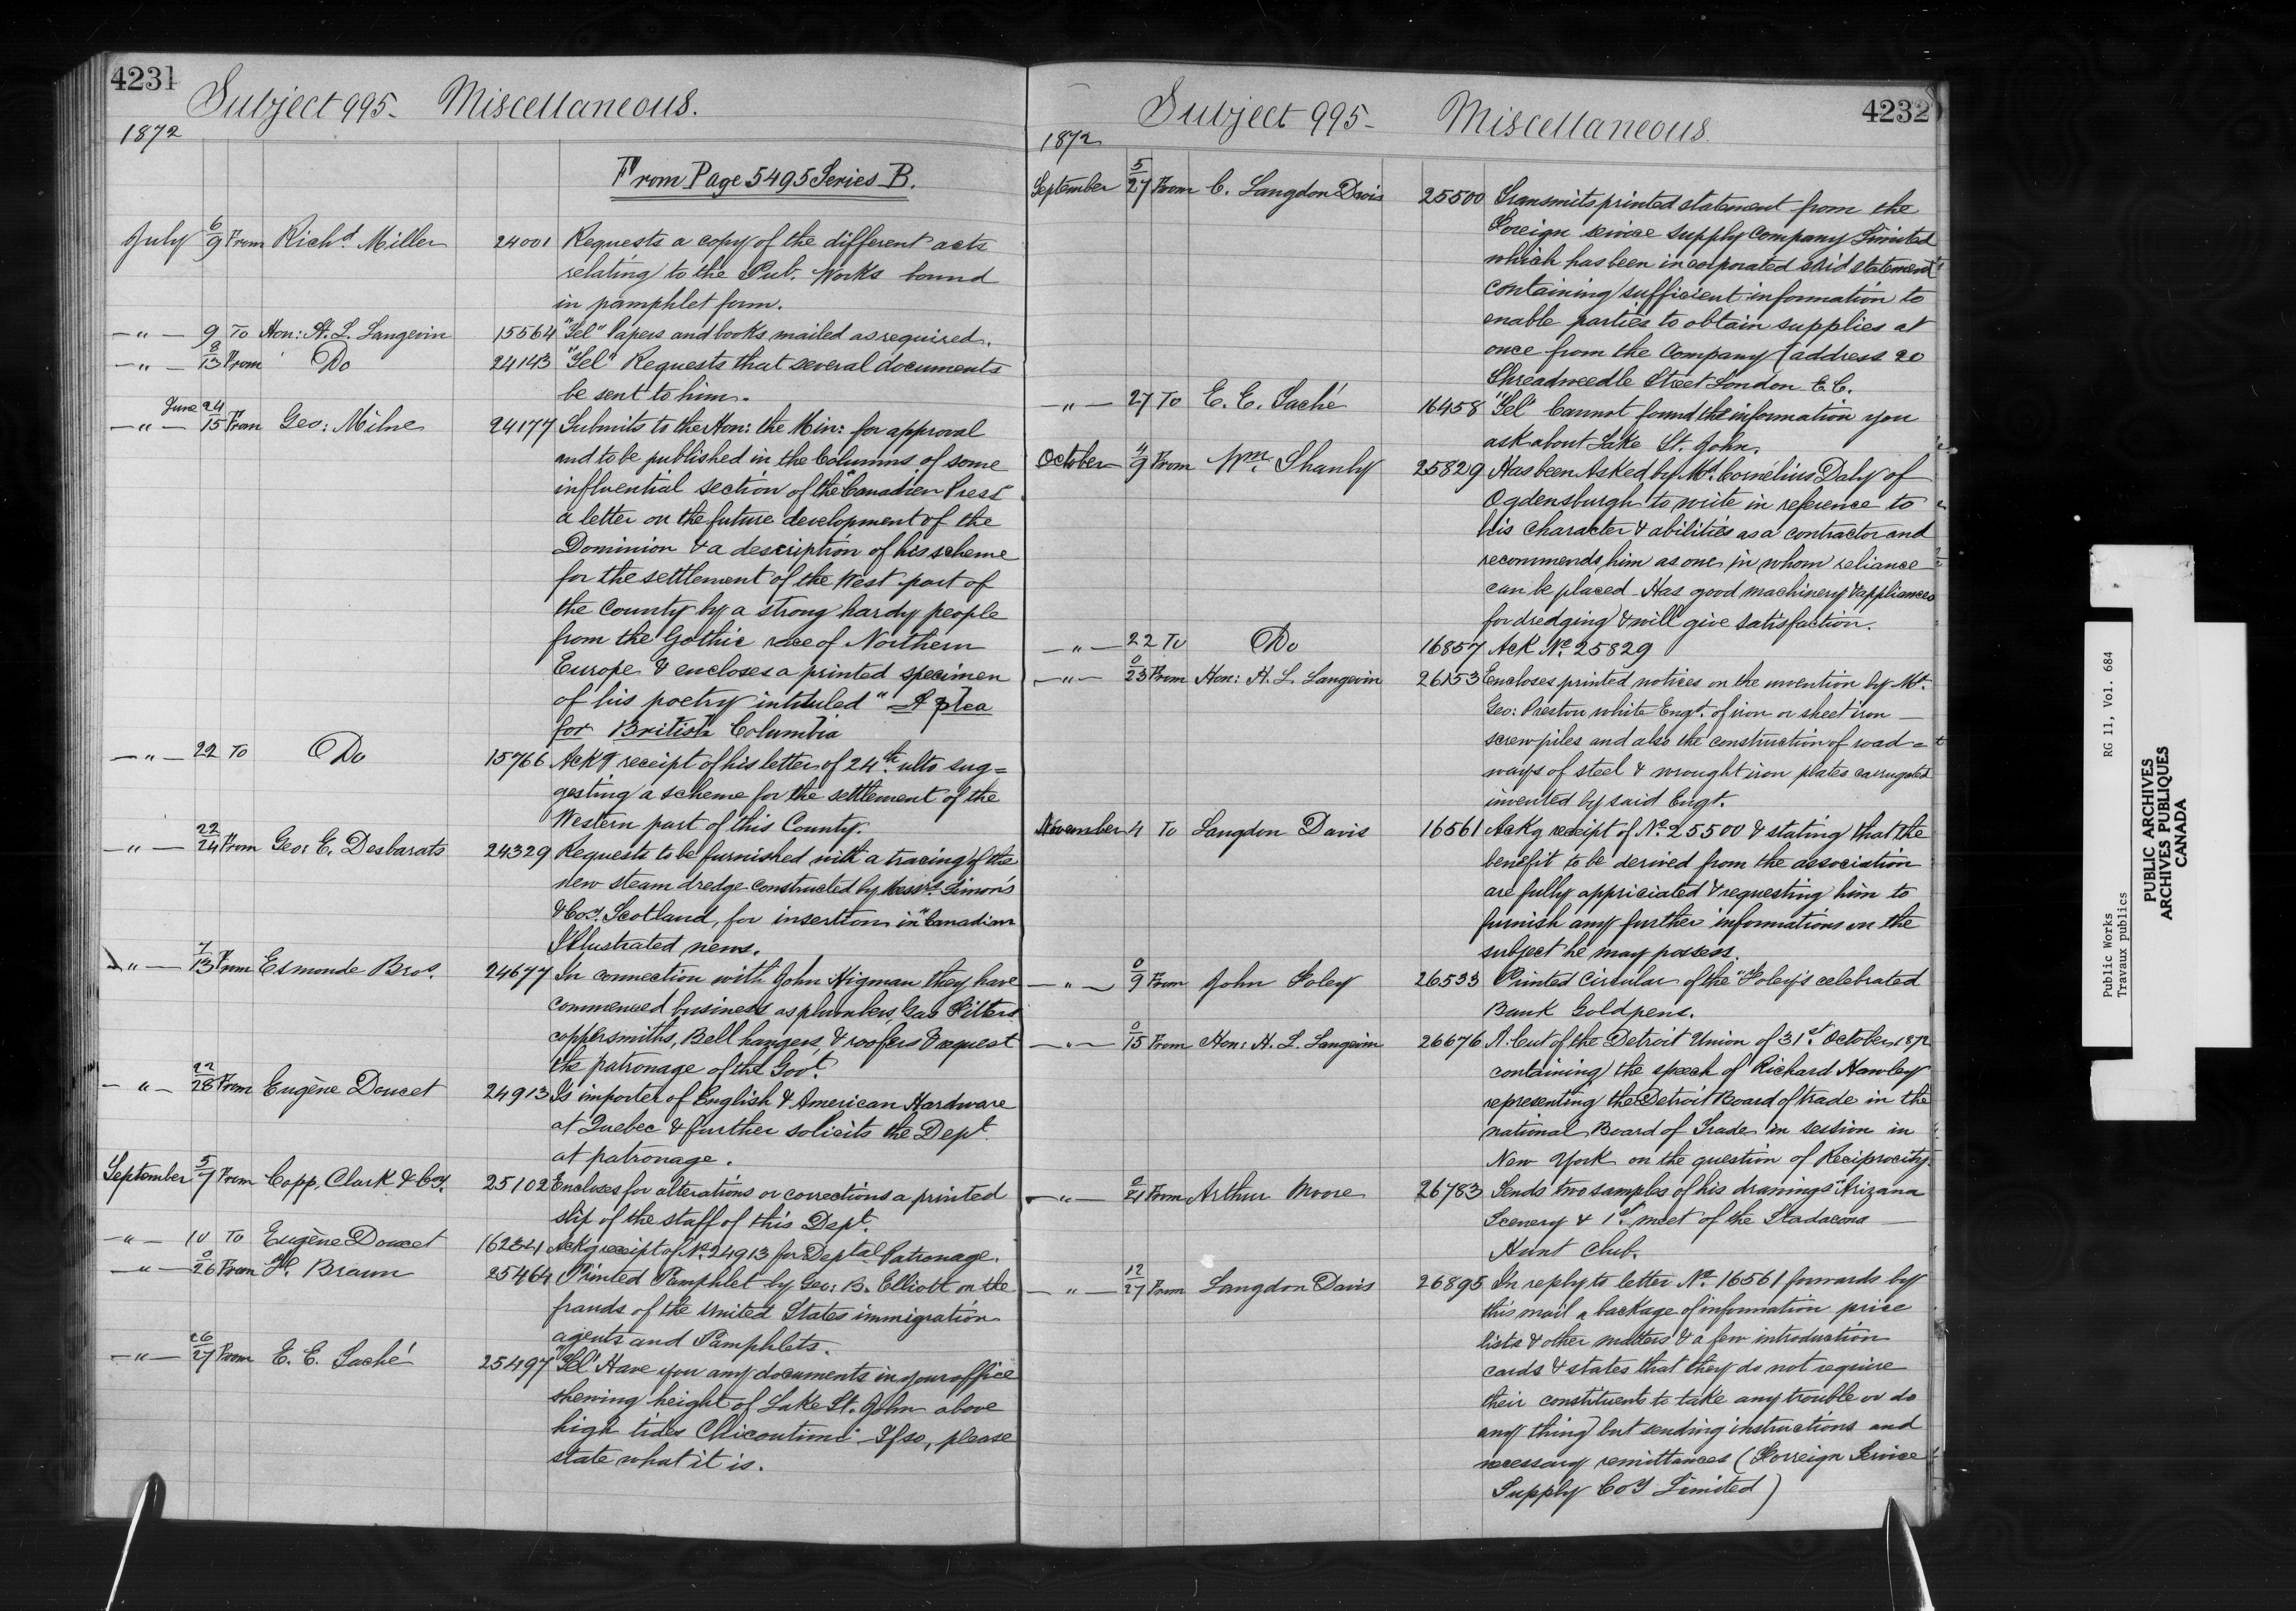 4231
Subject 995. Miscellaneous.
1872
From Page 5495 Series B.
July 6/9 From Richd. Miller 24001 Requests a copy of the different acts
relating to the Pub. Works bound
in pamphlet form.
—"— 9 To Hon: H. L. Langevin 15564 "Tel" Papers and books mailed as required.
—"— 8/13 From Do 24143 "Tel" Requests that several documents
be sent to him.
—"— June 24/15 From Geo: Milne 24177 Submits to the Hon: the Min: for approval
and to be published in the Columns of some
influential section of the "Canadien Press"
a letter on the future development of the
Dominion & a description of his scheme
for the settlement of the West part of
the County by a strong hardy people
from the Gothic race of Northern
Europe & encloses a printed specimen
of his poetry intituled "A plea
for British Columbia
—"— 22 To Do 15766 Ackg receipt of his letter of 24th ulto sug=
gesting a scheme for the settlement of the
Western part of this County.
—"— 22/24 From Geo: E. Desbarats 24329 Requests to be furnished with a tracing of the
new steam dredge constructed by Messrs. Simon's
& Coy. Scotland, for insertion in "Canadian
Illustrated news.
—"— 7/13 From Esmonde Bros. 24677 In connection with John Higman they have
commenced business as plumbers, Gas Fitters
coppersmiths, Bell hangers, & roofers & request
the patronage of the Govt.
—"— 22/28 From Eugène Doucet 24913 Is importer of English & American Hardware
at Quebec & further solicits the Dept.
at patronage.
September 5/7 From Copp, Clark & Coy. 25102 Encloses for alterations or corrections a printed
slip of the staff of this Dept.
—"— 10 To Eugène Doucet 16234 Ackg receipt of No. 24913 for Deptal Patronage.
—"— 0/26 From F. Braun 25464 Printed Pamphlet by Geo: B. Elliott on the
frauds of the United States immigration
agents and Pamphlets.
—"— 26/27 From E. E. Taché 25497 "Tel" Have you any documents in your office
shewing height of Lake St. John above
high tides Chicoutimi. If so, please
state what it is.
4232
Subject 995- Miscellaneous
1872
September 5/27 From C. Langdon Davis 25500 Transmits printed statement from the
Foreign service supply Company Limited
which has been incorporated said statement
containing sufficient information to
enable parties to obtain supplies at
once from the Company (address 20
Threadneedle Street London E.C.
—"— 27 To E. E. Taché 16458 "Tel" Cannot found the information you
ask about Lake St. John.
October 4/9 From Wm. Shanly 25829 Has been Asked by Mr. Cornélius Daly of
Ogdensburgh to write in reference to
his character & abilities as a contractor and
recommends him as one in whom reliance
can be placed - Has good machinery & appliances
for dredging & will give satisfaction.
—"— 22 To Do 16857 Ack No. 25829
—"— 0/23 From Hon: H. L. Langevin 26153 Encloses printed notices on the invention by Mr.
Geo: Preston white Engr. of iron or sheet iron —
screw piles and also the construction of road =
ways of steel & wrought iron plates corrugated
invented by said Engr.
November 4 To Langdon Davis 16561 Ackg receipt of No. 25500 & stating that the
benefit to be derived from the association
are fully appriciated & requesting him to
furnish any further informations on the
subject he may possess.
—"— 0/9 From John Foley 26533 Printed Circular of the "Foley's celebrated
Bank Gold pens.
—"— 0/15 From Hon: H. L. Langevin 26676 A Cut of the Detroit Union of 31st. October 1872
containing the speech of Richard Hawley
representing the Detroit Board of trade in the
national Board of Trade in session in
New York on the question of Reciprocity.
—"— 0/21 From Arthur Moore 26783 Sends two samples of his drawings "Arizana
Scenery & 1st. meet of the Stadacona —
Hunt Club.
—"— 12/27 From Langdon Davis 26895 In reply to letter No. 16561 forwards by
this mail a package of information price
lists & other matters & a few introduction
cards & states that they do not require
their constituents to take any trouble or do
any thing but sending instructions and
necessary remittances (Forreign Service
Supply Coy Limited)
Public Works RG 11, Vol. 684
Travaux publics
PUBLIC ARCHIVES
ARCHIVES PUBLIQUES
CANADA